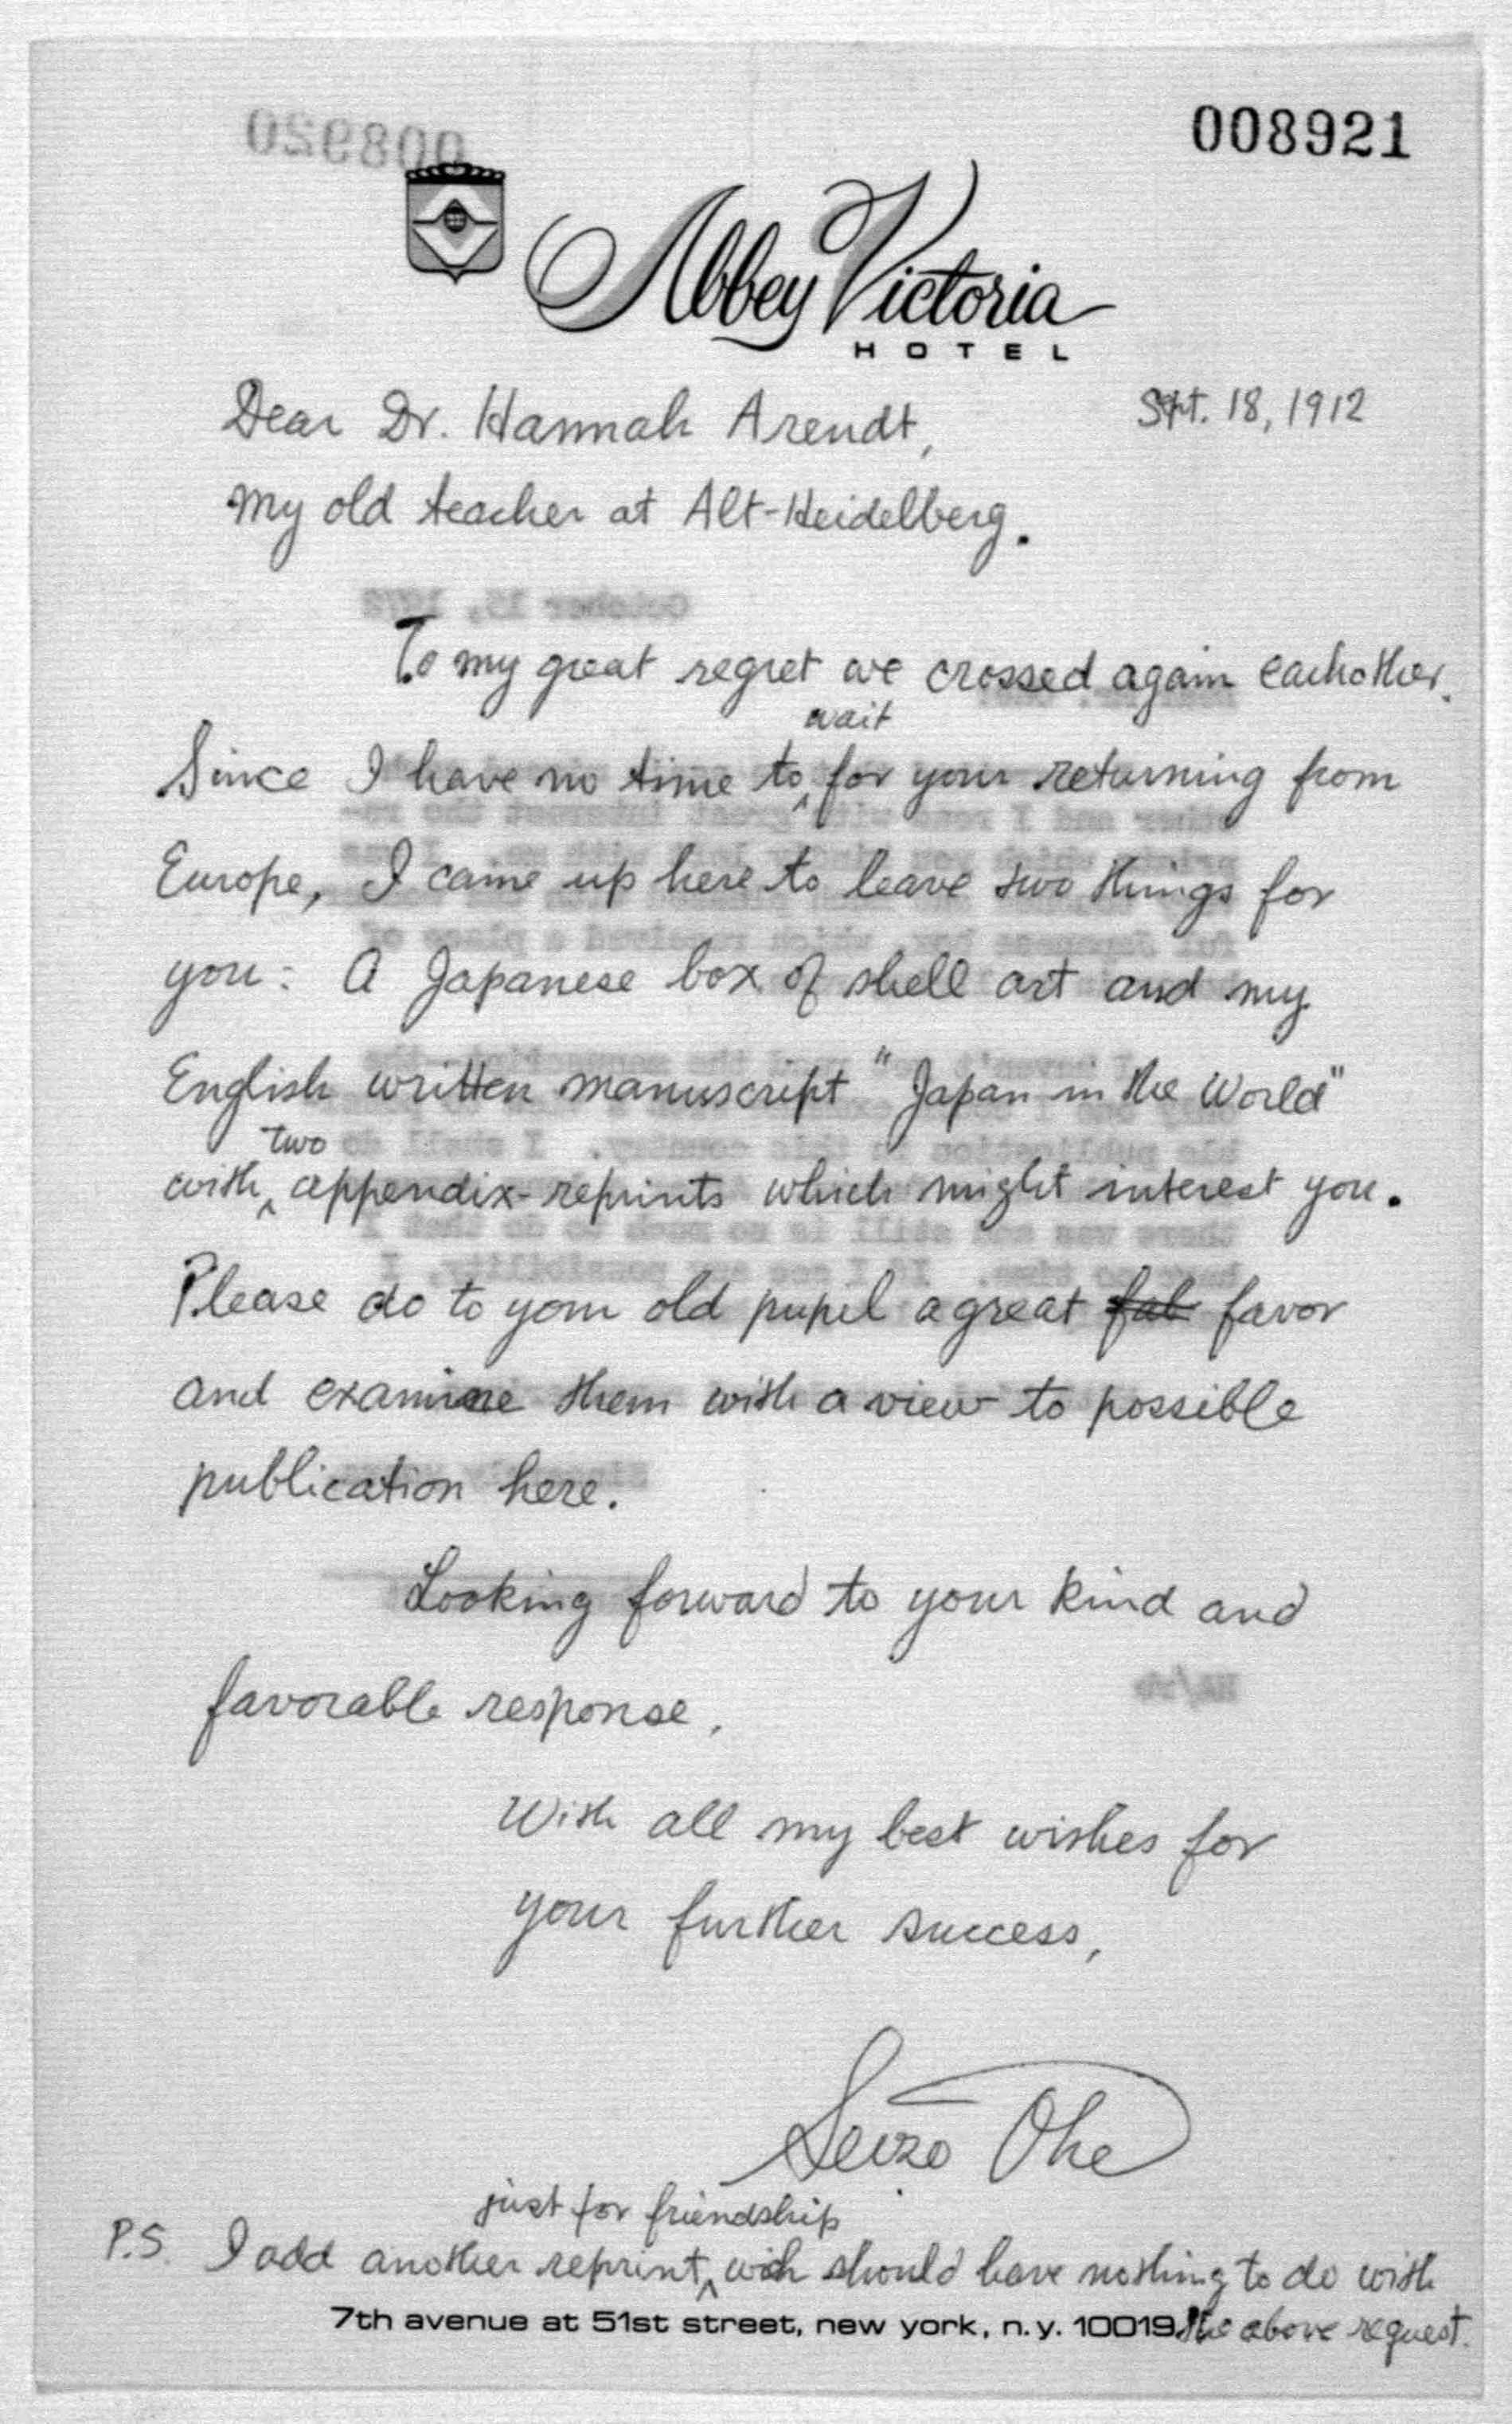 008921
Abbey Victoria
HOTEL
Sept. 18, 1912
Dear Dr. Hannah Arendt,
my old teacher at Alt-Heidelberg.
To my great regret we crossed again eachother.
wait
Since I have no time to ‸ for your returning from
Europe, I came up here to leave two things for
you: A Japanese box of shell art and my
English written manuscript "Japan in the World"
two
with ‸ appendix-reprints which might interest you.
Please do to your old pupil a great fab favor
and examine them with a view to possible
publication here.
Looking forward to your kind and
favorable response,
With all my best wishes for
your further success,
Seizo Ohe
just for friendship
P.S. I add another reprint ‸ wich should have nothing to do with
the above request.
7th avenue at 51st street, new york, n.y. 10019